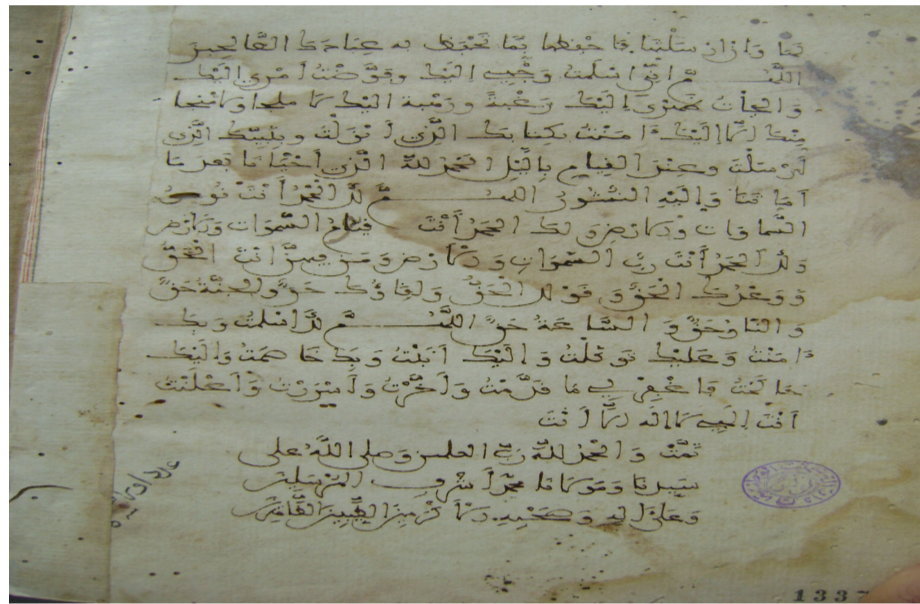 وان ارسلتها فاحفظها بما تحفظ به عبادك الصالحين
اللهم اني اسلمت وجهي اليك وفوضت أمري إليك
وألجأت ظهري إليك رغبةً ورهبة اليك لا ملجا ولا منجا
منك الا إليك ءامنت بكتابك الذي أنزلت وبنبيك الذي
أرسلت وعند القيام بالليل الحمد لله الذي أحيانا بعد ما
أماتنا وإليه النشور اللهم لك الحمد أنت نور
السماوات والارض ولك الحمد أنت قيام السموات والارض
ولك الحمد أنت رب السموات والأرض ومن فيهن أنت الحق
ووعدك الحق وقولك الحق ولقاؤك حق والجنة حق
والنار حق والساعة حق اللهم لك اسلمت وبك
ءامنت وعليك توكلت وإليك أنبت وبك خاصمت وإليك
حاكمت فاغفر لي ما قدمت وأخرت وأسررت وأعلنت
أنت إلهي لا اله الا أنت
تمت والحمد لله رب العلمين وصلى الله على
سيدنا ومولانا محمد أشرف المرسلين
وعلى اله وصحبه الأكرمين الطيبين الطاهرين
1337